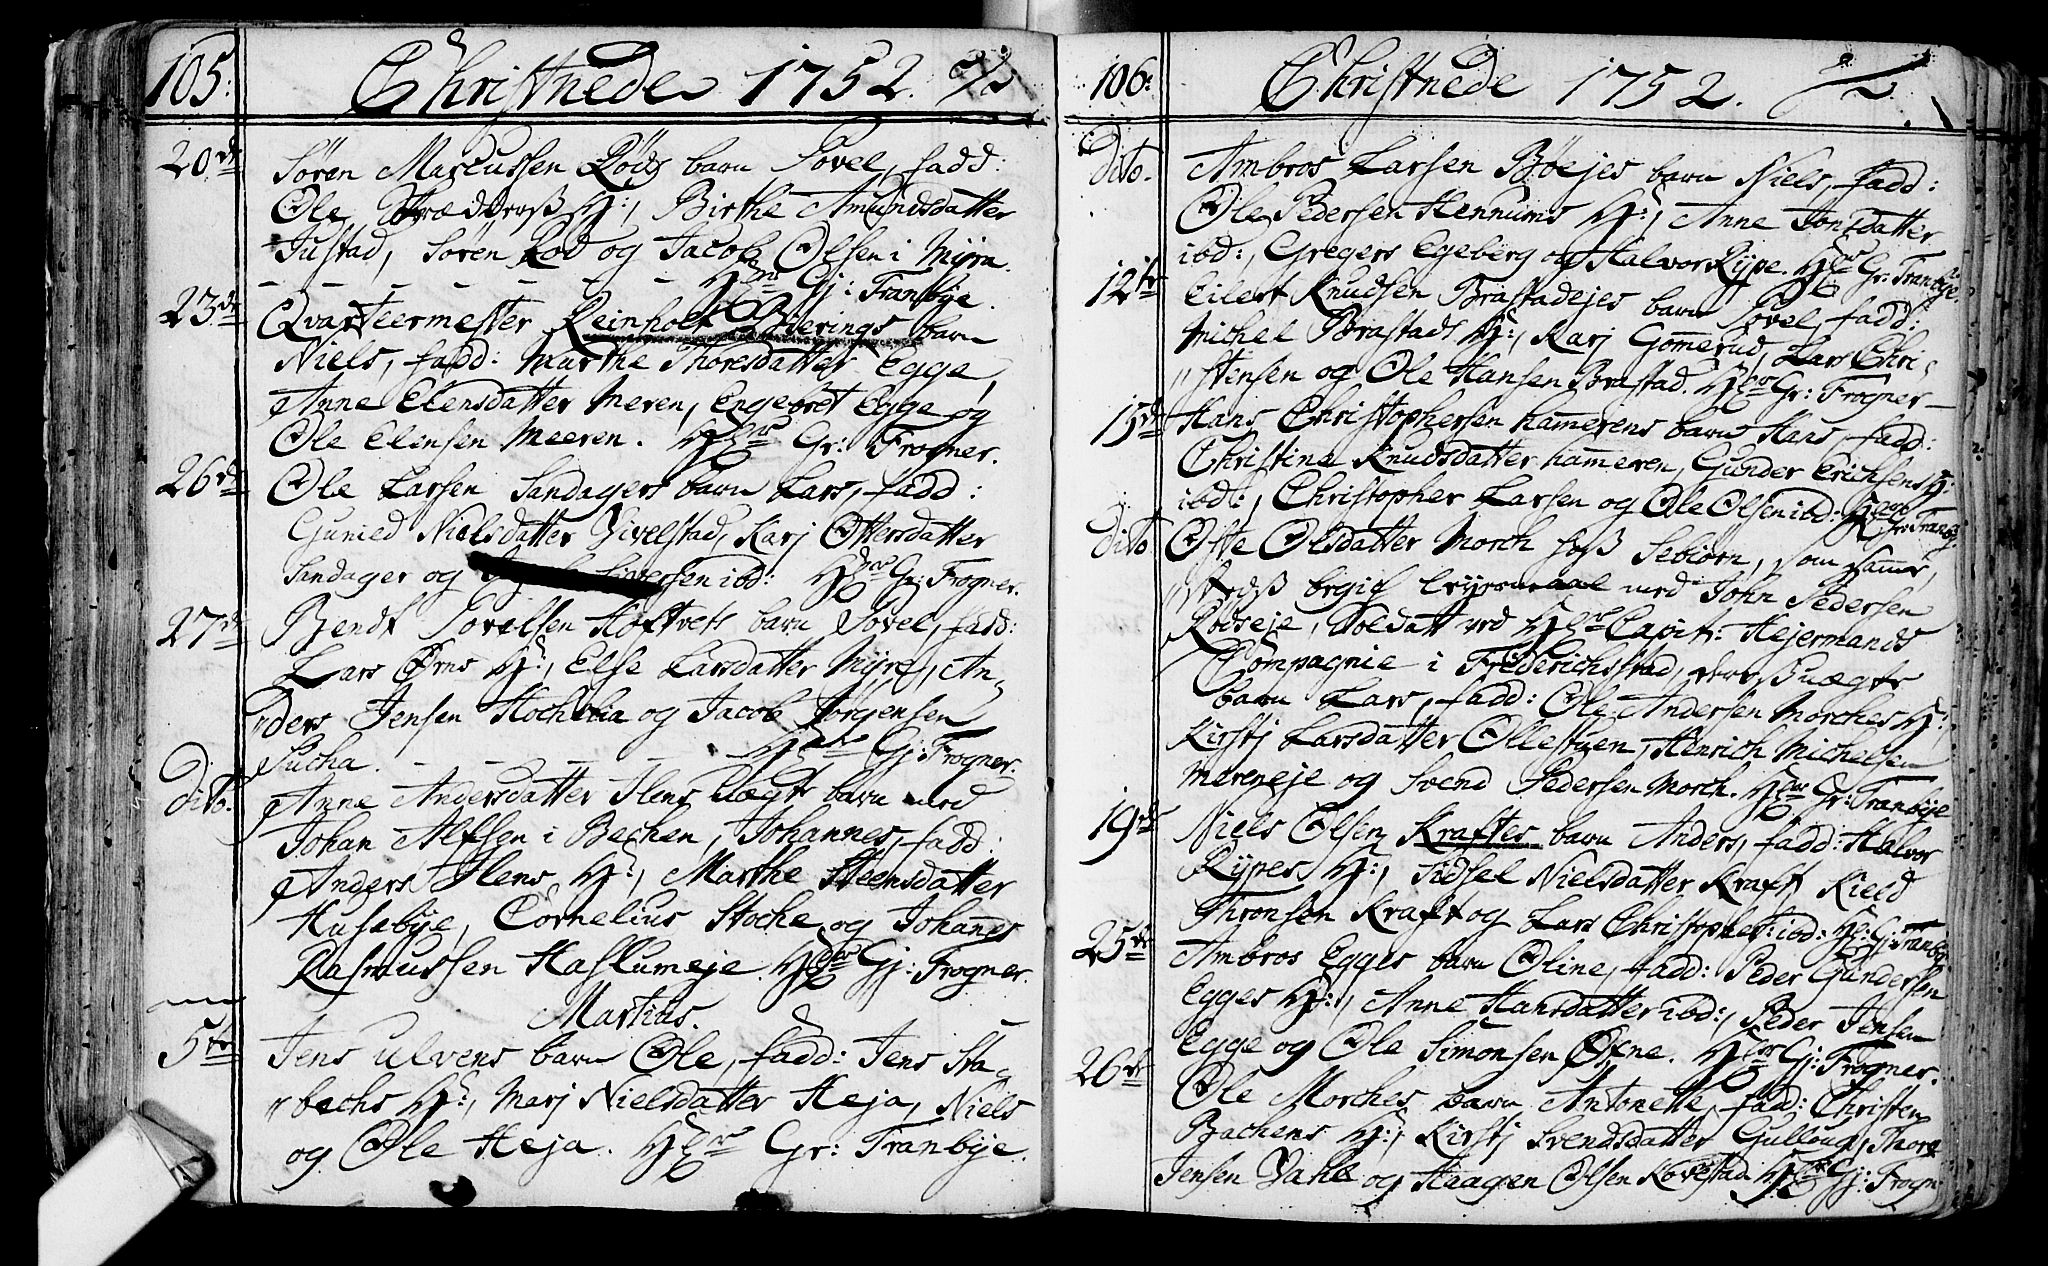 105:
Christnede 1752.
20de
Søren Marcussen Röds barn Povel, fadd:
Ole Bræddruß H:, Birthe Amundsdatter
Justad, Søren Rod og Jacob Olsen i Myra.
Gj: Tranbye.
23de
Qvarteermester Reinholt Bierings barn
Niels, fadd: Marthe Thoresdatter Egge,
Anne Elensdatter Meren, Engebret Egge og
Ole Elensen Meeren. Gr: Frogner.
26de
Ole Larsen Sandagers barn Lars, fadd:
Guned Nielsdatter Vivelstad, Karj Ottersdatter
Sandager og Siversen ibd: Gr: Frogner.
27de
Bendt Povelsen Hoftvets barn Povel, fadd:
Lars Ørns H:, Else Larsdatter Myre, An-
ders Jensen Hochlia og Jacob Jörgensen
Sucha. Gj: Frogner.
Dito.
Anne Andersdatter Ilens uægte barn med
Johan Alfsen i Bechen, Johannes, fadd:
Anders Ilens H:, Marthe Steensdatter
Husebye, Cornelius Stoche og Johanes
Rasmussen Haslumeje. Gj: Frogner.
Martius.
5te
Jens Ulvens barn Ole, fadd: Jens Sta-
bechs H:, Marj Nielsdatter Heja, Niels
og Ole Heja. Gr: Tranbye.
106:
Christnede 1752.
Dito.
Ambros Larsen Bøejes barn Niels, fadd:
Ole Pedersen Hennums H:, Anne Jonsdatter
ibd:, Gregers Egeberg og Halvor Rype. Gr: Tranbye.
12te
Eilert Knudsen Brastadejes barn Povel, fadd:
Michel Brastads H:, Karj Gomerud, Lars Chri-
stensen og Ole Hansen Brastad. Gr: Frogner
15de
Hans Christophersen Hamerens barn Hans, fadd:
Christine Knudsdatter Hameren, Gunder Erichsens H:
ibd:, Christopher Larsen og Ole Olsen ibd: Gr: Tranby.
Dito
Olsdatter Morch som samme
med John Pedersen
Rodseje, Soldatt ved Capit: Hejermands
Compagnie i Friderichstad, deres uægte
barn Lars, fadd: Ole Andersen Morches H:,
Kirstj Larsdatter Ollestuen, Henrich Michelsen
Mereneje og Svend Pedersen Morch. Gr: Tranbye
19de
Niels Olsen Kraftes barn Anders, fadd: Halvor
Rypes H:, Sidsel Nielsdatter Kraft, Kield
Thronsen Kraft og Lars Christopher: ibd: Gj: Tranby.
25de
Ambros Egges barn Oline, fadd: Peder Gundersen
Egges H:, Anne Hansdatter ibd:, Peder Jensen
Egge og Ole Simonsen Øfne. Gj: Frogner.
26de
Ole Morches barn Antonette, fadd: Christen
Bachens H:, Kirstj Svendsdatter Gulloug, Thore
Jensen Vahle og Haagen Olsen Kovestad Gj: Frogn.